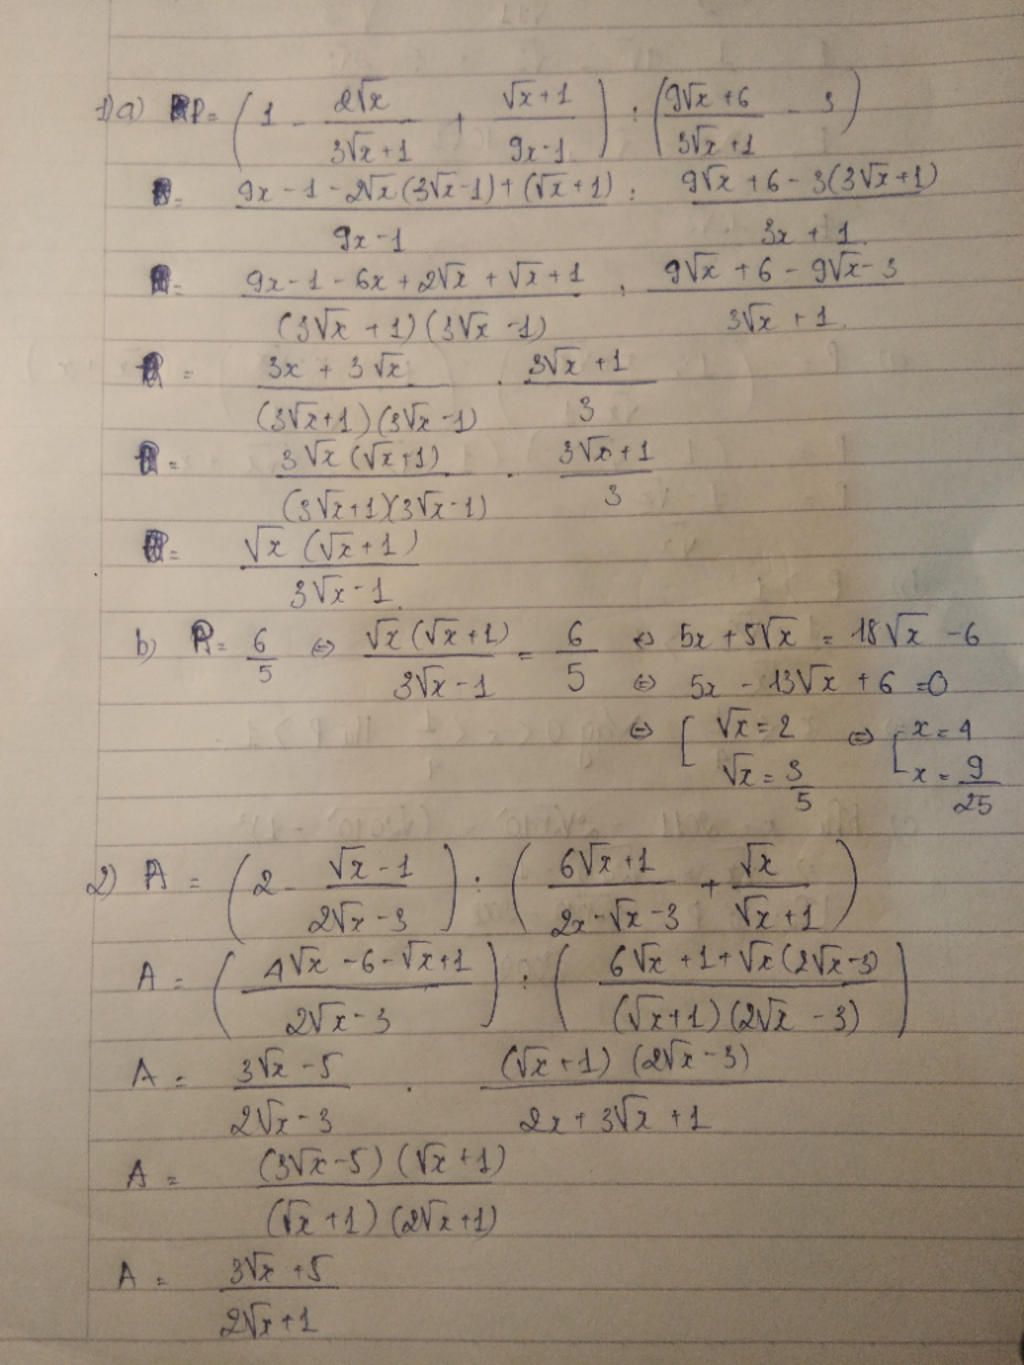 1) a) P = ( 1 - 2√x / 3√x + 1 + √x + 1 / 9x - 1 ) : ( 9√x + 6 / 3√x + 1 - 3 )
P = 9x - 1 - 2√x (3√x - 1) + (√x + 1) / 9x - 1 : 9√x + 6 - 3(3√x + 1) / 3x + 1
P = 9x - 1 - 6x + 2√x + √x + 1 / (3√x + 1) (3√x - 1) : 9√x + 6 - 9√x - 3 / 3√x + 1
P = 3x + 3√x / (3√x + 1) (3√x - 1) . 3√x + 1 / 3
P = 3√x (√x + 1) / (3√x + 1)(3√x - 1) . 3√x + 1 / 3
P = √x (√x + 1) / 3√x - 1
b) P = 6/5 ⇔ √x (√x + 1) / 3√x - 1 = 6/5 ⇔ 5x + 5√x = 18√x - 6
⇔ 5x - 13√x + 6 = 0
⇔ [ √x = 2 ⇔ [ x = 4
√x = 3/5 x = 9/25
2) A = ( 2 - √x - 1 / 2√x - 3 ) : ( 6√x + 1 / 2x - √x - 3 + √x / √x + 1 )
A = ( 4√x - 6 - √x + 1 / 2√x - 3 ) : ( 6√x + 1 + √x (2√x - 3) / (√x + 1) (2√x - 3) )
A = 3√x - 5 / 2√x - 3 . (√x + 1) (2√x - 3) / 2x + 3√x + 1
A = (3√x - 5) (√x + 1) / (√x + 1) (2√x + 1)
A = 3√x + 5 / 2√x + 1